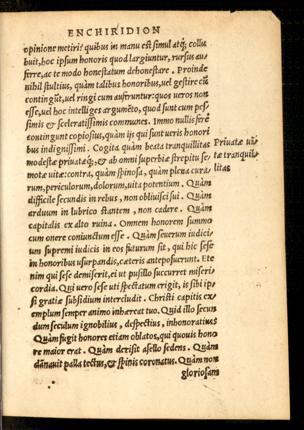 ENCHIRIDION
opinione metiri? quibus in manu est simul atq; collu
buit, hoc ipsum honoris quod largiuntur, rursus au-
ferre, ac te modo honestatum dehonestare. Proinde
nihil stultius, quàm talibus honoribus, uel gestire cũ
contingũt, uel ringi cum auferuntur: quos ueros non
esse, uel hoc intelliges argumẽto, quod sunt cum pes-
simis & sceleratissimis communes. Immo nullis ferè
contingunt copiosius, quàm ijs qui sunt ueris honori
bus indignissimi. Cogita quàm beata tranquillitas
modestæ priuatæq;, & ab omni superbiæ strepitu se-
motæ uitæ: contra, quàm spinosa, quàm plena cura-
rum, periculorum, dolorum, uita potentium. Quàm
difficile secundis in rebus, non obliuisci sui. Quàm
arduum in lubrico stantem, non cadere. Quàm
capitalis ex alto ruina. Omnem honorem summo
cum onere coniunctum esse. Quàm seuerum iudici-
um supremi iudicis in eos futurum sit, qui hic sese
in honoribus usurpandis, cæteris anteposuerunt. Ete
nim qui sese demiserit, ei ut pusillo succurret miseri-
cordia. Qui uero sese uti spectatum erigit, is sibi ip-
si gratiæ subsidium intercludit. Christi capitis ex-
emplum semper animo inhæreat tuo. Quid illo secun
dum seculum ignobilius, despectius, inhonoratius?
Quàm fugit honores etiam oblatos, qui quouis hono
re maior erat. Quàm derisit asello sedens. Quàm
dãnauit palla tectus, & spinis coronatus. Quàm non
gloriosam
Priuatæ ui-
tæ tranquil-
litas